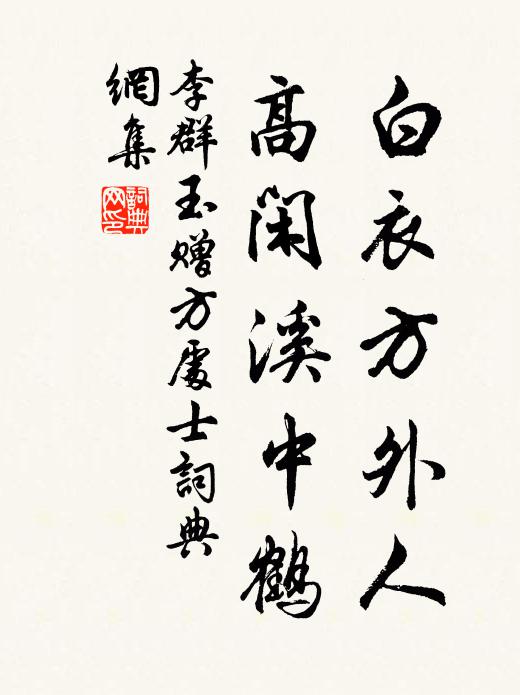 白衣方外人
高闲溪中鹤
李群玉赠方處士詞典
網集
詞典
网印